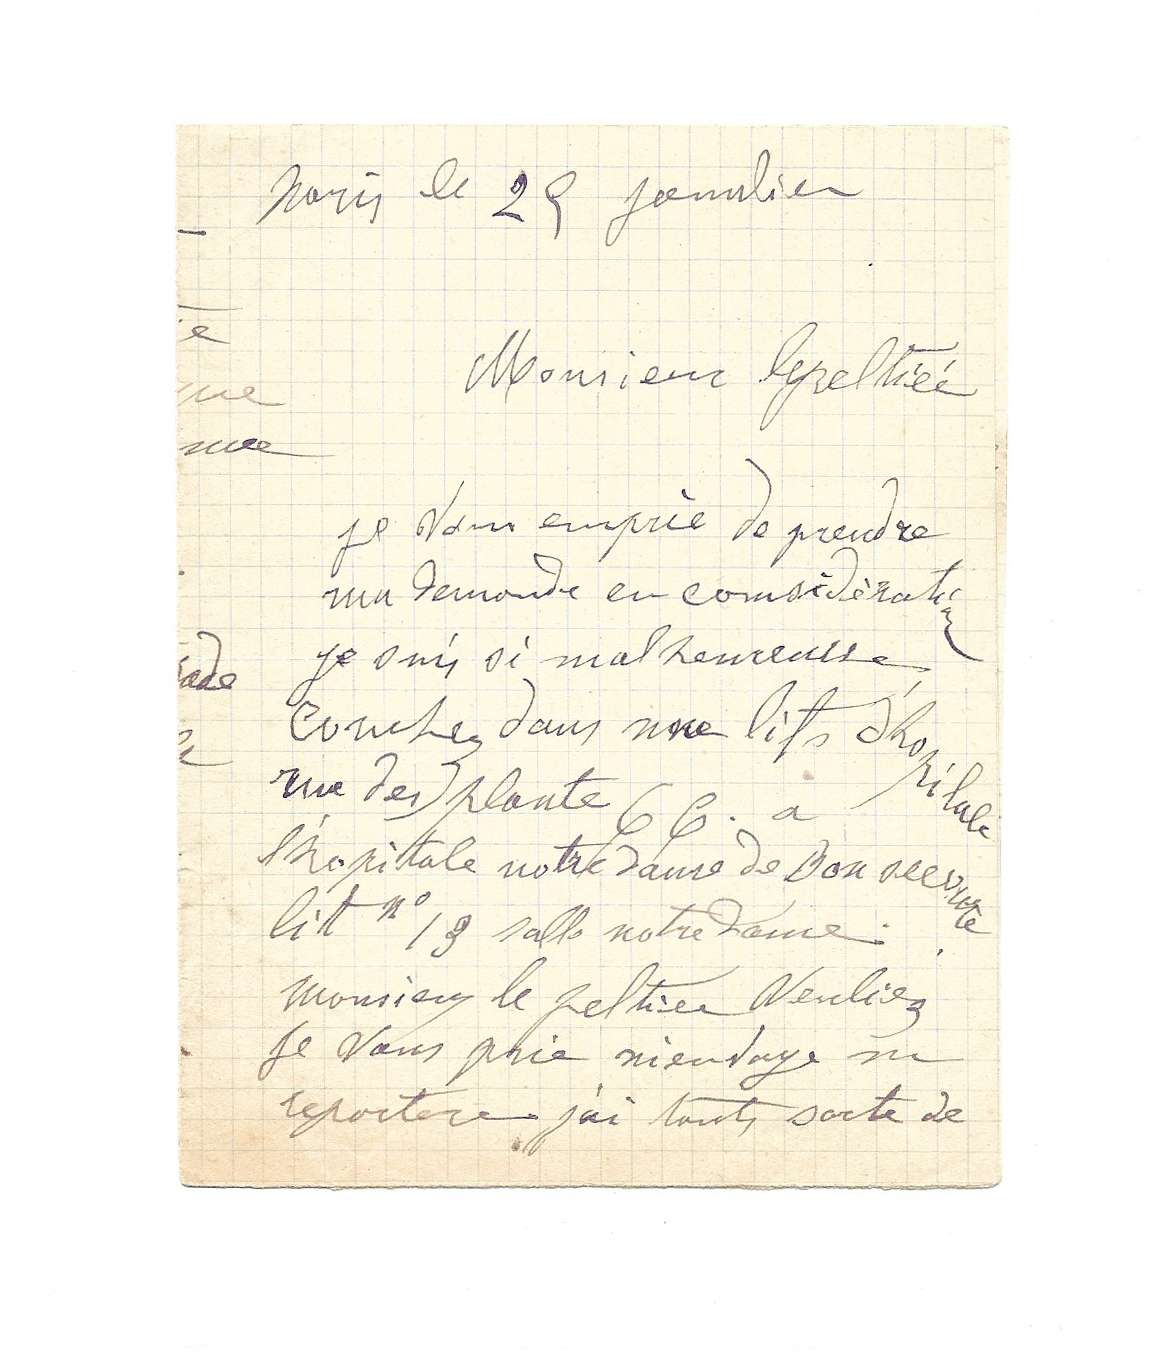 paris le 25 janvlier
Monsieur lepeltiéé
je vous emprie de prendre
ma demande en considèration
je suis si malheureusse
couchez dans une lits d'hopitale
rue des plante 66. a
l'hopitale notre dame de Bon secourte
lit n° 13 salle notre dame.
monsieur le peltiee Venliez
je vous prie mienvoye un
reportere j'ai touts sorte de